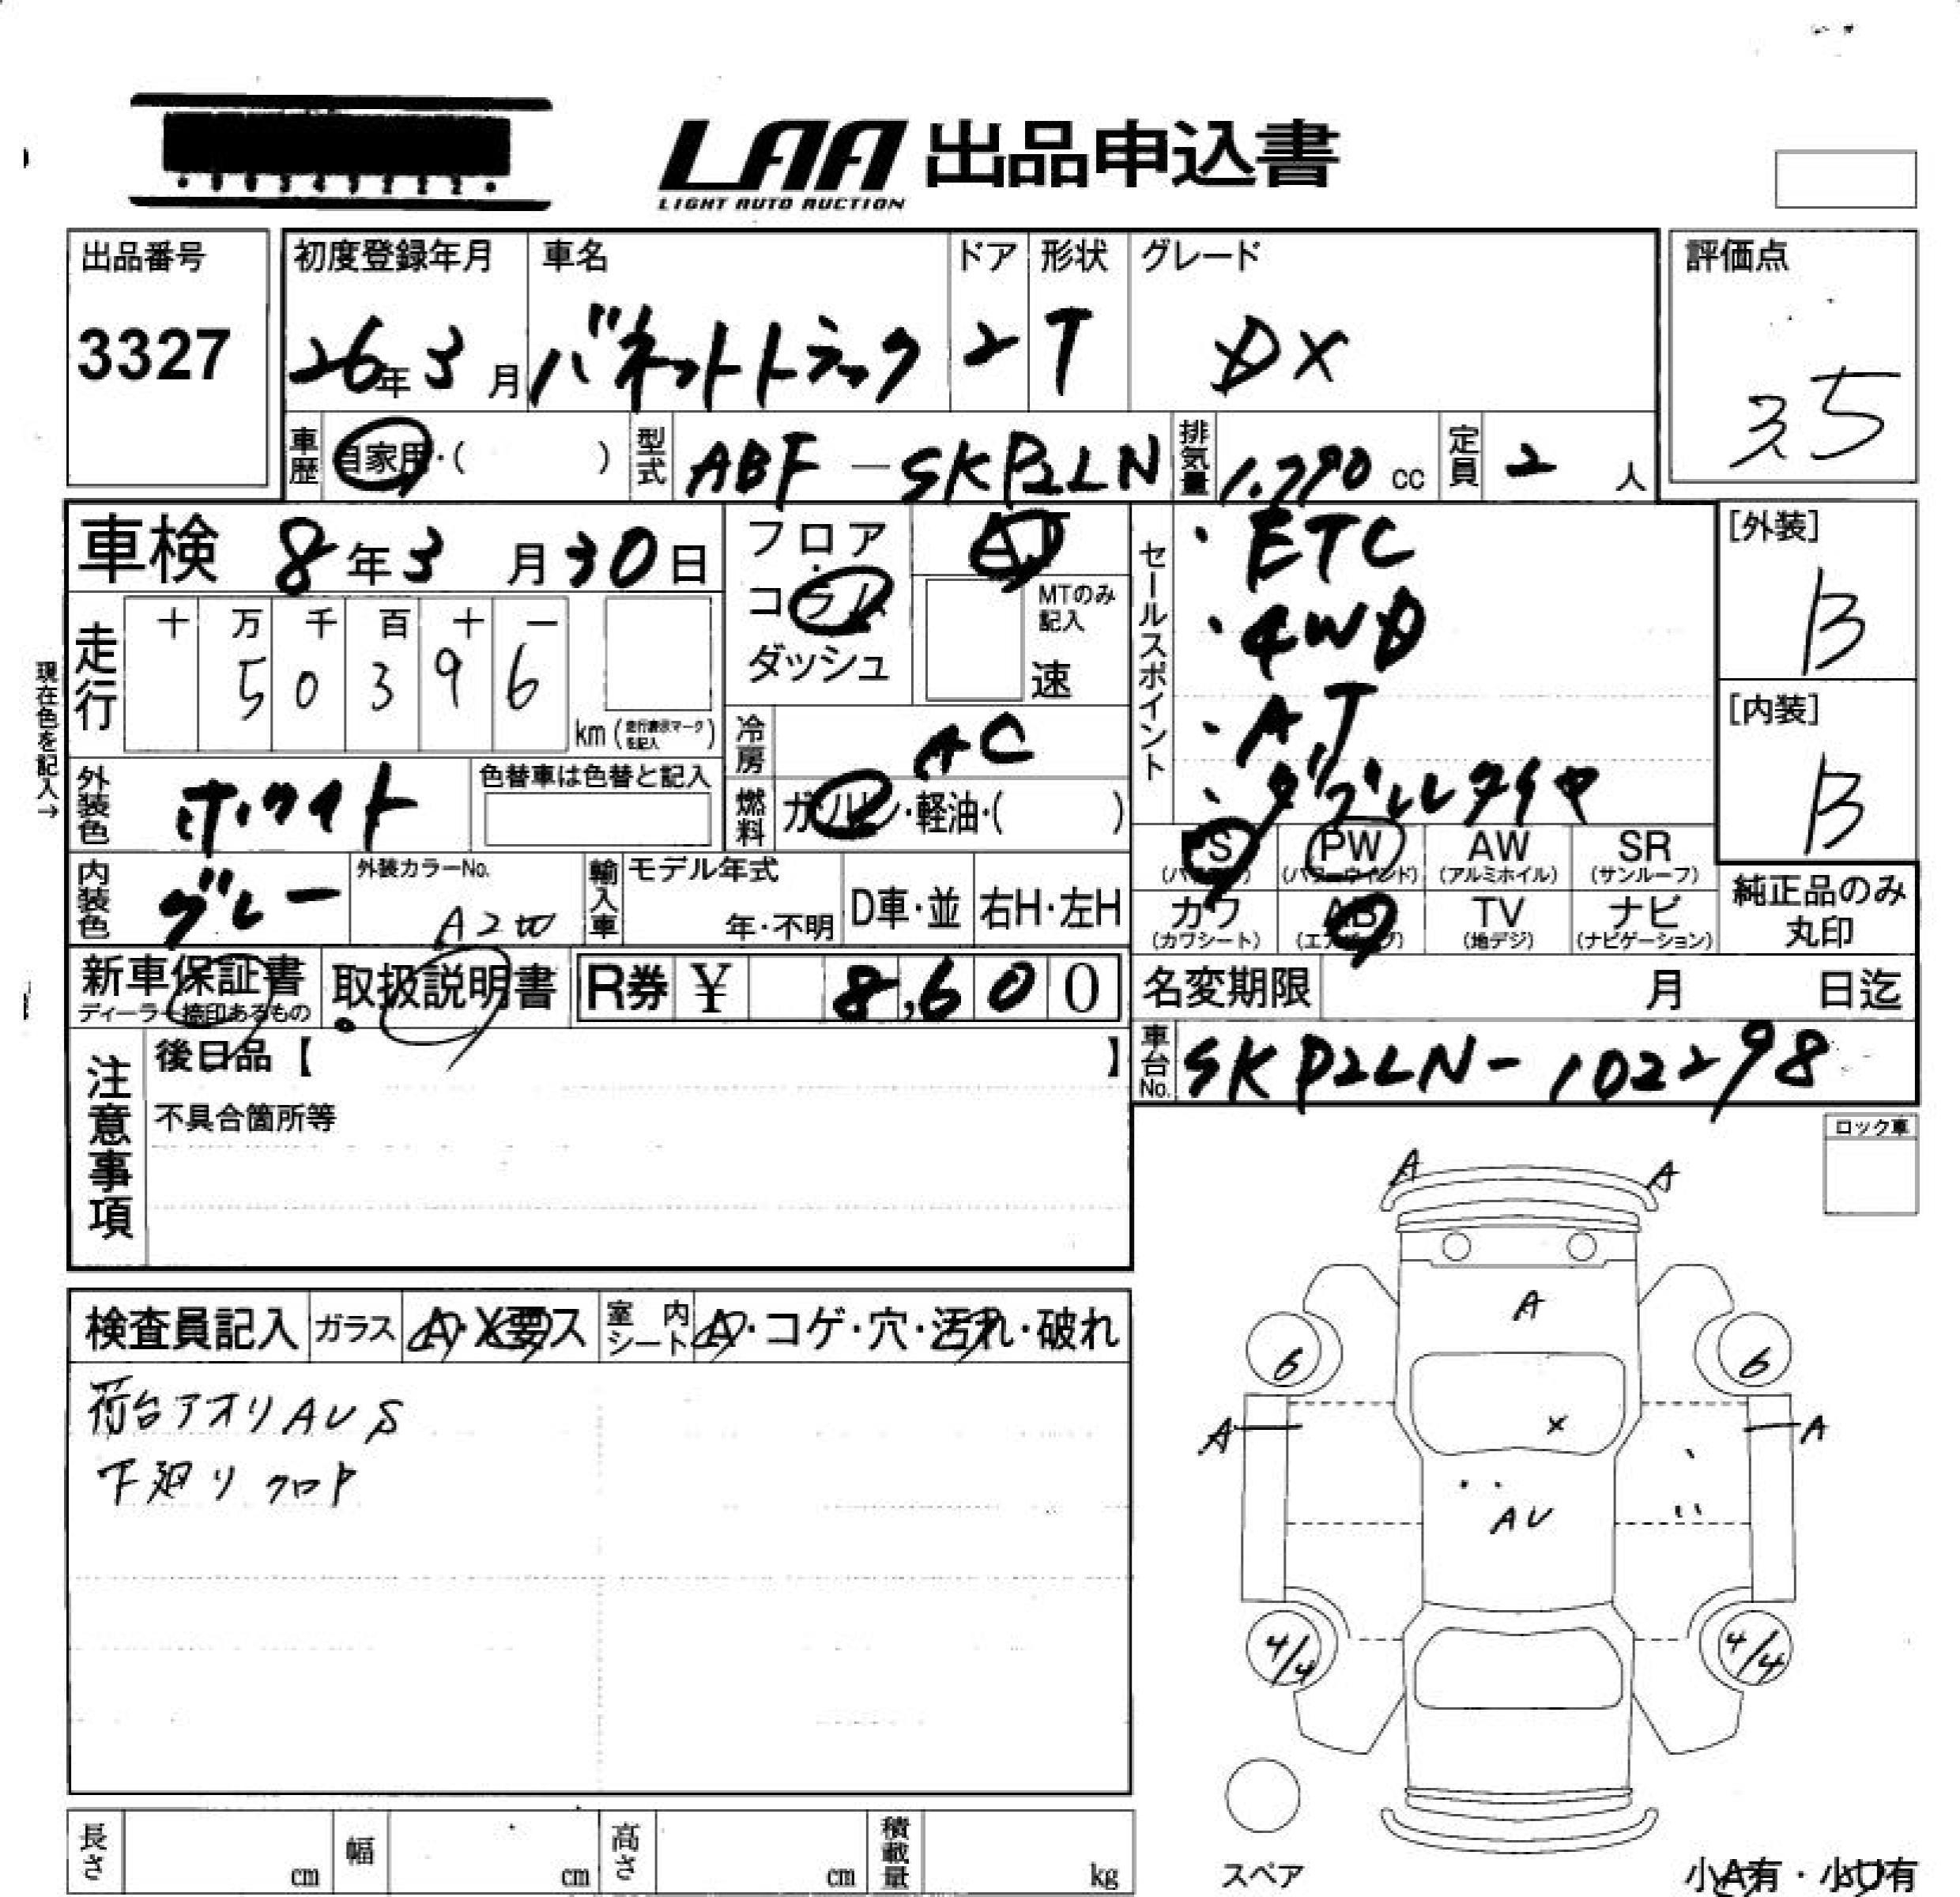 LAA 出品申込書
LIGHT AUTO AUCTION
出品番号
3327
初度登録年月
26年3月
車名
バネットトラック
ドア
2
形状
T
グレード
DX
評価点
35
車歴
自家用・( )
型式
ABF-SKP2LN
排気量
1.790 cc
定員
2 人
車検 8年3月30日
フロア
コラム
ダッシュ
AT
MTのみ記入
速
セールスポイント
・ETC
・4WD
・AT
・ダブルタイヤ
[外装]
B
[内装]
B
現在色を記入→
走行
十 万 千 百 十 一
5 0 3 9 6
km (走行表示マークを記入)
冷房
AC
燃料
ガソリン・軽油・( )
外装色
ホワイト
色替車は色替と記入
内装色
グレー
外装カラーNo.
輸入車
モデル年式
年・不明
D車・並
右H・左H
PS PW AW SR
(パワーウインド) (アルミホイル) (サンルーフ)
カワ AB TV ナビ
(カワシート) (エアバッグ) (地デジ) (ナビゲーション)
純正品のみ
丸印
新車保証書
ディーラー捺印あるもの
取扱説明書
R券 ¥ 8,600
名変期限 月 日迄
車台No.
SKP2LN-102298
注意事項
後日品【 】
不具合箇所等
ロック車
検査員記入
ガラス
A・X要ス
室内シート
A・コゲ・穴・汚れ・破れ
荷台アオリAUS
下廻りクロP
A A
A
6 6
A A
X
AU
4/4 4/4
スペア
小A有・小U有
長さ cm
幅 cm
高さ cm
積載量 kg